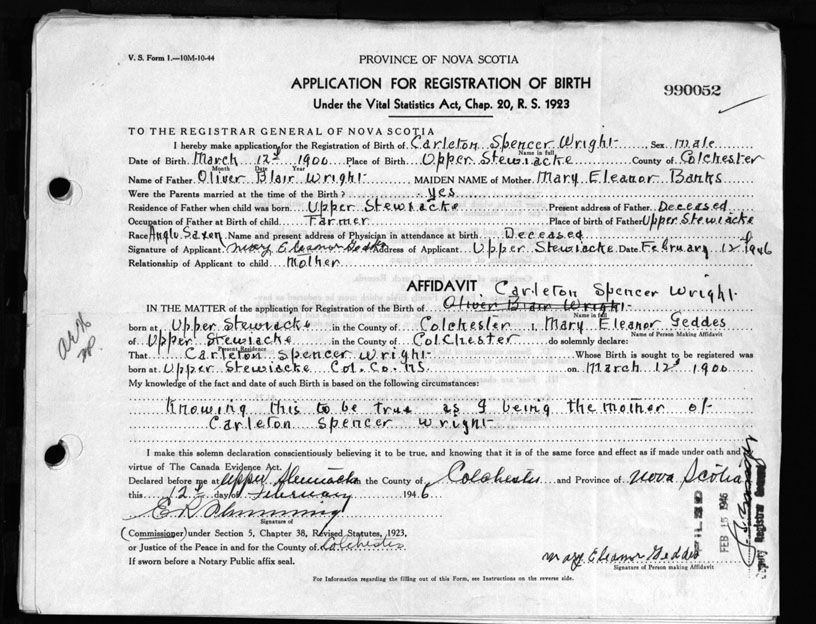 V. S. Form 1.—10M-10-44
PROVINCE OF NOVA SCOTIA
APPLICATION FOR REGISTRATION OF BIRTH
990052
Under the Vital Statistics Act, Chap. 20, R. S. 1923
TO THE REGISTRAR GENERAL OF NOVA SCOTIA
I hereby make application for the Registration of Birth of Carleton Spencer Wright Sex male
Name in full
Date of Birth March 12th 1900 Place of Birth Upper Stewiacke County of Colchester
Month Date Year
Name of Father Oliver Blair Wright MAIDEN NAME of Mother Mary Eleanor Banks
Were the Parents married at the time of the Birth? yes
Residence of Father when child was born Upper Stewiacke Present address of Father Deceased
Occupation of Father at Birth of child Farmer Place of birth of Father Upper Stewiacke
Race Anglo Saxen Name and present address of Physician in attendance at birth Deceased
Signature of Applicant Mary Eleanor Geddes Address of Applicant Upper Stewiacke Date February 12th 1946
Relationship of Applicant to child Mother
AFFIDAVIT Carleton Spencer Wright
IN THE MATTER of the application for Registration of the Birth of Oliver Blair Wright
Name in full
born at Upper Stewiacke in the County of Colchester I, Mary Eleanor Geddes
Name of Person Making Affidavit
of Upper Stewiacke in the County of Colchester do solemnly declare:
Present Residence
That Carleton Spencer Wright Whose Birth is sought to be registered was
born at Upper Stewiacke Col. Co. NS on March 12th 1900
My knowledge of the fact and date of such Birth is based on the following circumstances:
Knowing this to be true as I being the mother of
Carleton Spencer Wright
I make this solemn declaration conscientiously believing it to be true, and knowing that it is of the same force and effect as if made under oath and by
virtue of The Canada Evidence Act.
Declared before me at Upper Stewiacke in the County of Colchester and Province of Nova Scotia
this 12th day of February 1946
Signature of
(Commissioner) under Section 5, Chapter 38, Revised Statutes, 1923,
or Justice of the Peace in and for the County of Colchester
If sworn before a Notary Public affix seal.
Mary Eleanor Geddes
Signature of Person making Affidavit
For Information regarding the filling out of this Form, see Instructions on the reverse side.
FEB 15 1946
Deputy Registrar General